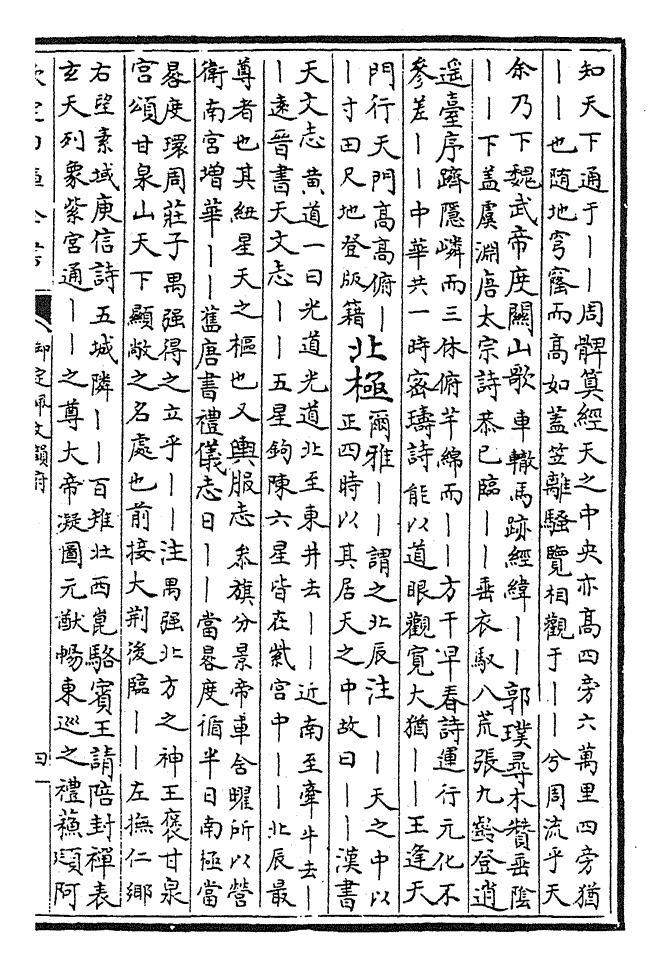 知天下通于｜｜周髀算經天之中央亦高四旁六萬里四旁猶
｜｜也随地穹窿而高如盖笠離騷覽相觀于｜｜兮周流乎天
余乃下魏武帝度關山歌車轍馬跡經緯｜｜郭璞尋木贊垂隂
｜｜下盖虞淵唐太宗詩恭已臨｜｜垂衣馭八荒張九齡登逍
遥臺序躋隱嶙而三休俯芊綿而｜｜方干早春詩運行元化不
參差｜｜中華共一時宻璹詩能以道眼觀寛大猶｜｜王逢天
門行天門高高俯｜
｜寸田尺地登版籍
北極
爾雅｜｜謂之北辰注｜｜天之中以
正四時以其居天之中故曰｜｜漢書
天文志黄道一曰光道光道北至東井去｜｜近南至牽牛去｜
｜逺晉書天文志｜｜五星鉤陳六星皆在紫宫中｜｜北辰最
尊者也其紐星天之樞也又輿服志叅旗分景帝車含曜所以營
衛南宫增華｜｜舊唐書禮儀志曰｜｜當晷度循半日南極當
晷度環周莊子禺强得之立乎｜｜注禺强北方之神王褒甘泉
宫頌甘泉山天下顯敞之名處也前接大荆後臨｜｜左撫仁鄉
右望素域庾信詩五城隣｜｜百雉壯西崑駱賓王請陪封禪表
玄天列象紫宫通｜｜之尊大帝凝圖元猷暢東巡之禮蘓頲阿
欽定四庫全書
御定佩文韻府
四